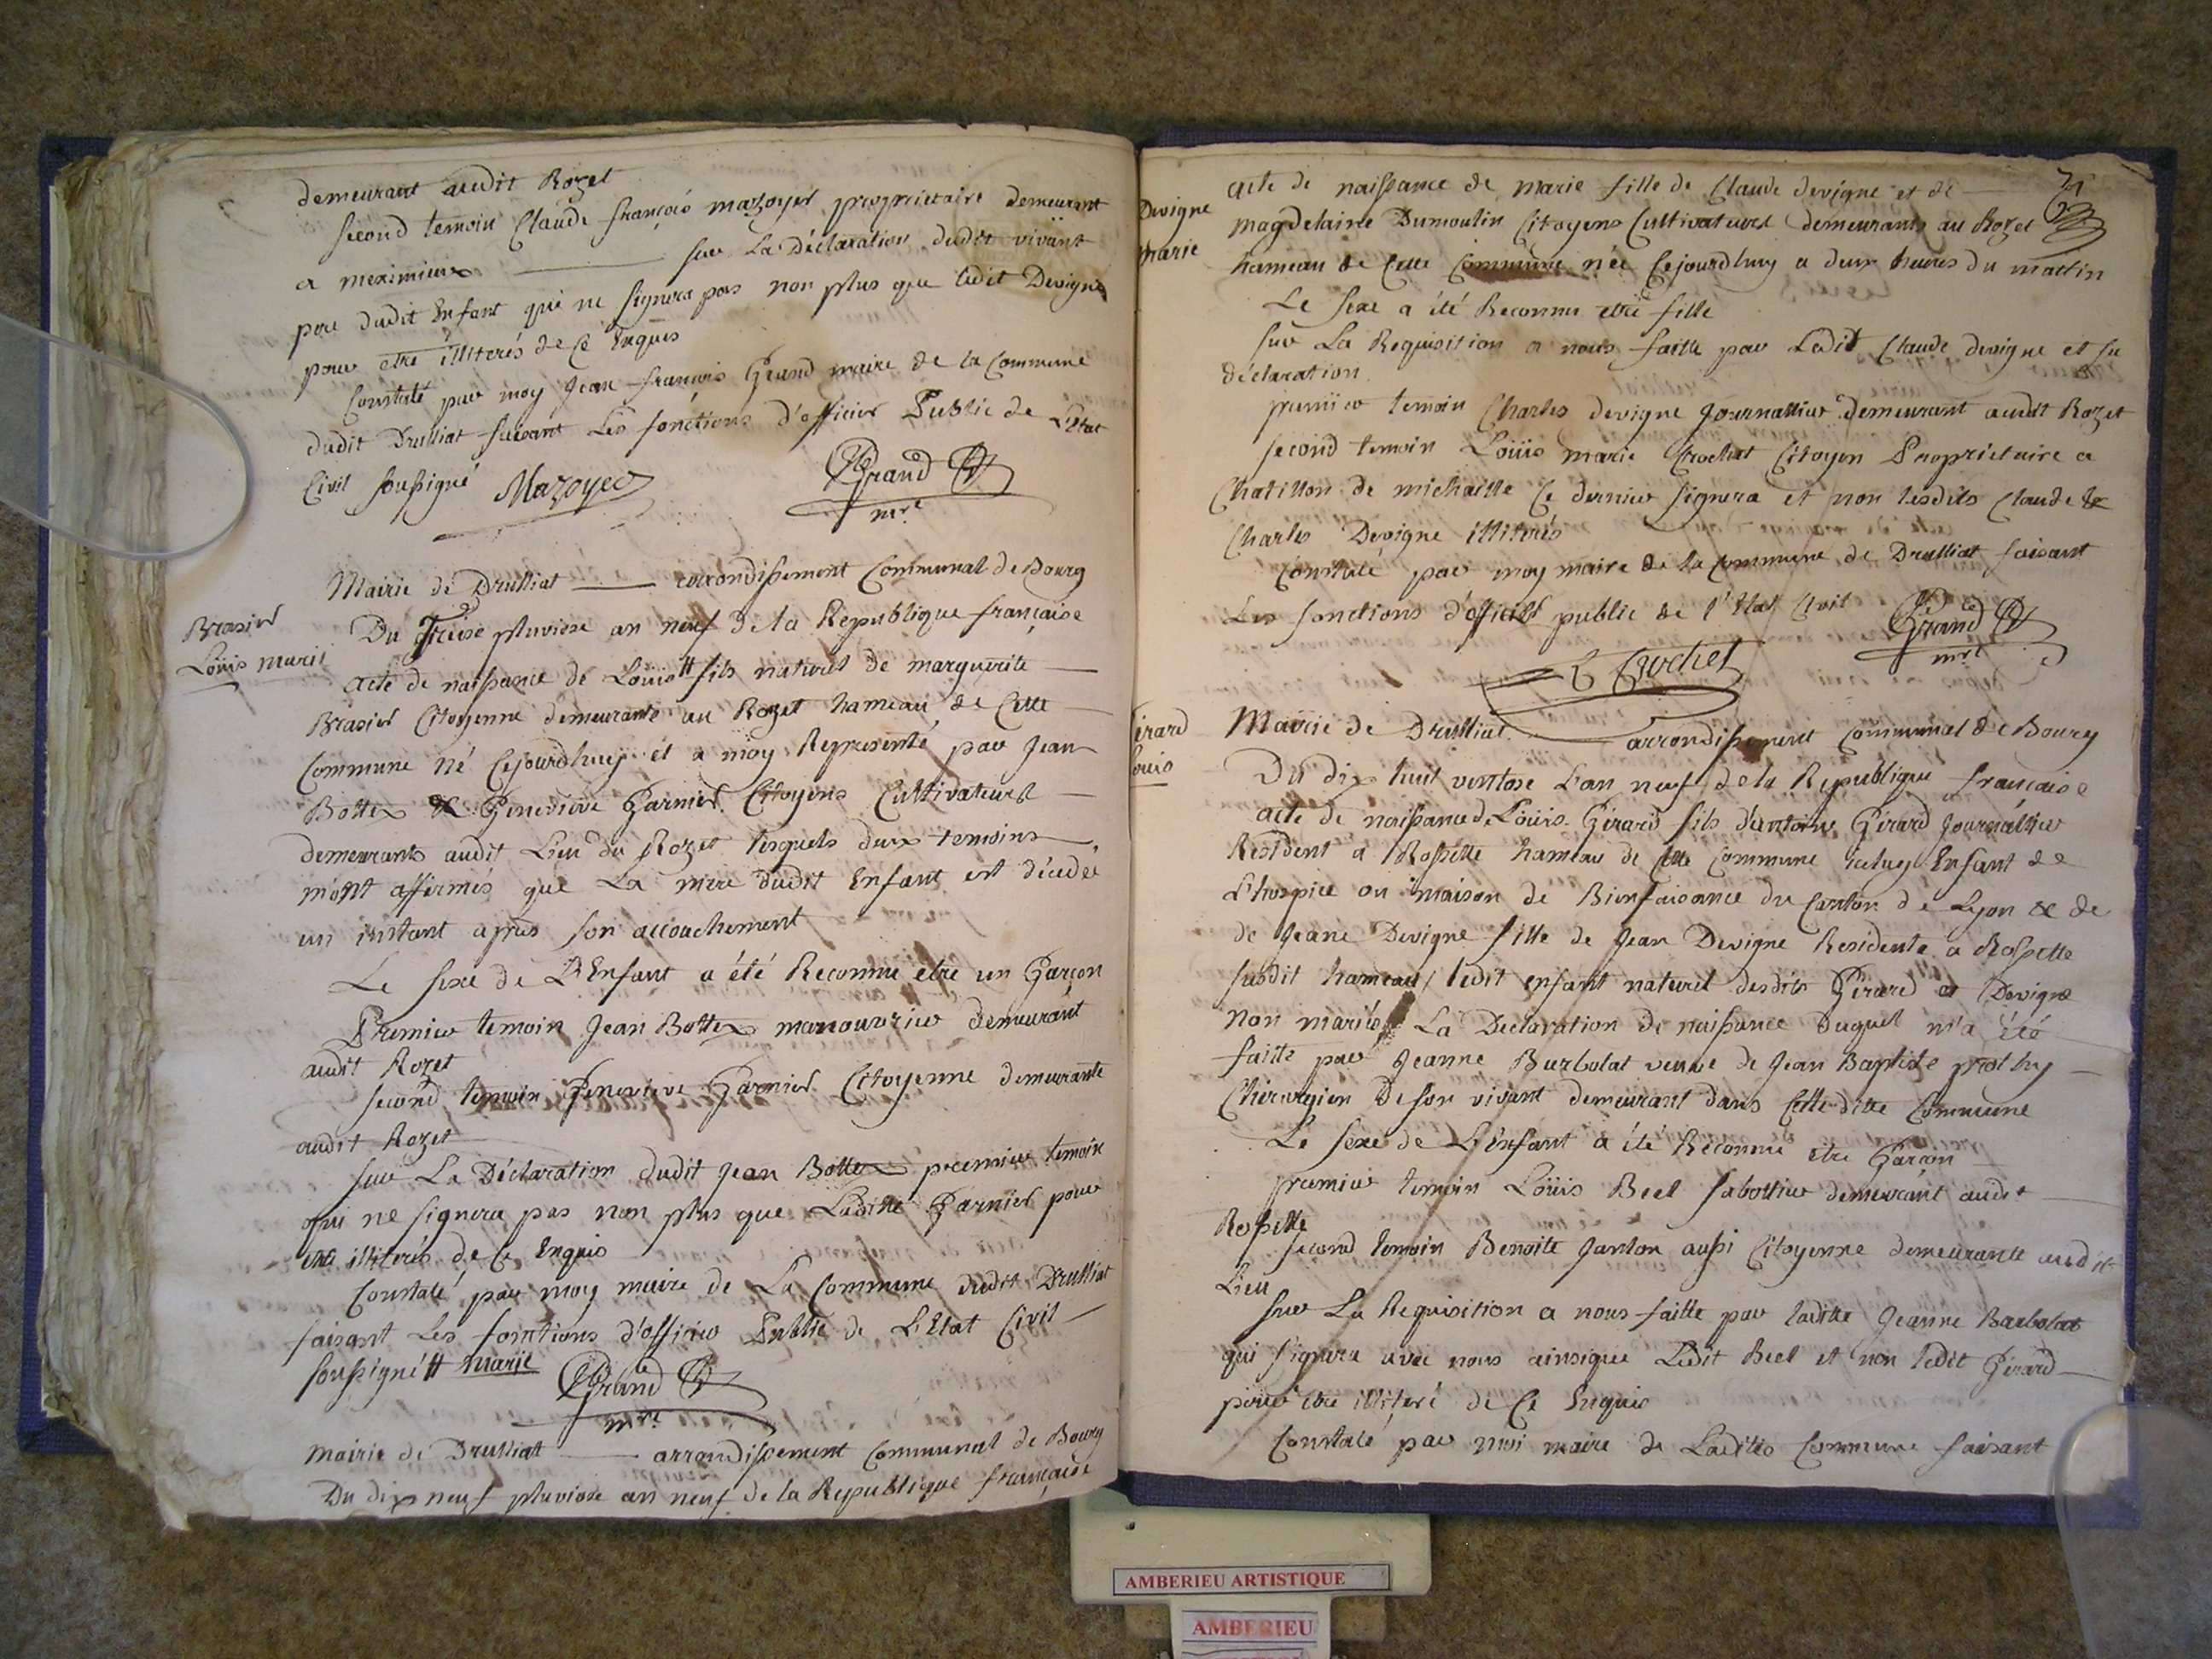 demeurant audit Rozet
second temoin Claude françois mazoyer proprietaire demeurant
a meximieux ——— sur La Déclaration dudit vivant
pere dudit Enfant qui ne signera pas non plus que ledit Devigne
pour etre illiterés de Ce Enquis
Constaté par moy Jean françois Grand maire de la Commune
dudit Drulliat faisant Les fonctions d'officier Public de L'Etat
Civil soussigné Mazoyer Grand
mre
Mairie de Drulliat ——— arrondissement Communal de Bourg
Brasier
Loüis marie
Du Treise pluviose an neuf de la Republique française
acte de naissance de Loüis # fils naturel de marguerite —
Brasier Citoyenne demeurante au Rozet hameau de Cette
Commune né Cejourdhuy et a moy Representé par Jean
Bottex & Genevieve Garnier Citoyens Cultivateurs —
demeurants audit Lieu du Rozet lesquels deux temoins
m'ont affirmés que La mere dudit Enfant est décedée
un instant apres son accouchement
Le sexe de L'Enfant a été Reconnu etre un Garçon
Premier temoin Jean Bottex manouvrier demeurant
audit Rozet
second temoin Genevieve Garnier Citoyenne demeurante
audit Rozet
sur La Déclaration dudit Jean Bottex premier temoin
qui ne signera pas non plus que Laditte Garnier pour
etre illiterés de Ce Enquis
Constaté par moy maire de La Commune dudit Drulliat
faisant Les fonctions d'officier Public de L'Etat Civil —
soussigné # marie Grand
mre
Mairie de Drulliat ——— arrondissement Communal de Bourg
Du dix neuf pluviose an neuf de la Republique française
Devigne
marie
acte de naissance de marie fille de Claude devigne et de —
magdelaine Dumoulin Citoyens Cultivateurs demeurants au Rozet
hameau de Cette Commune née Cejourdhuy a deux heures du matin
Le sexe a été Reconnu etre fille
sur La Requisition a nous faitte par Ledit Claude devigne et sa
déclaration
premier temoin Charles devigne Journallier demeurant audit Rozet
second temoin Loüis marie Crochet Citoyen Proprietaire a
Chatillon de michaille Ce dernier signera et non lesdits Claude &
Charles Devigne illiterés
Constaté par moy maire de la commune de Drulliat faisant
Les fonctions d'officier public de l'Etat Civil Grand
mre
Crochet
Gerard
Louis
Mairie de Drulliat ——— arrondissement Communal de Bourg
Du dix huit ventose L'an neuf de la Republique française
acte de naissance de Loüis Gerard fils d'antoine Gerard Journallier
Resident a Rossette hameau de Cette Commune icelui Enfant de
L'hospice ou maison de Bienfaisance du Canton de Lyon & de
de Jeane Devigne fille de Jean Devigne Residente a Rossette
susdit hameau, ledit enfant naturel desdits Gerard et Devigne
non mariés La Declaration de naissance duquel m'a été
faitte par Jeanne Burbolat veuve de Jean Baptiste
Chirurgien De son vivant demeurant dans Cette ditte Commune
Le sexe de L'enfant a été Reconnu etre Garçon
premier temoin Loüis Beel sabottier demeurant audit —
Rossette
second temoin Benoite Janton aussi Citoyenne demeurante audit
Lieu
sur La Requisition a nous faitte par laditte Jeanne Barbolat
qui signera avec nous ainsique Ledit Beel et non ledit Gerard —
pour etre illiteré de Ce Enquis
Constaté par moi maire de Laditte Commune faisant
AMBERIEU ARTISTIQUE
AMBERIEU